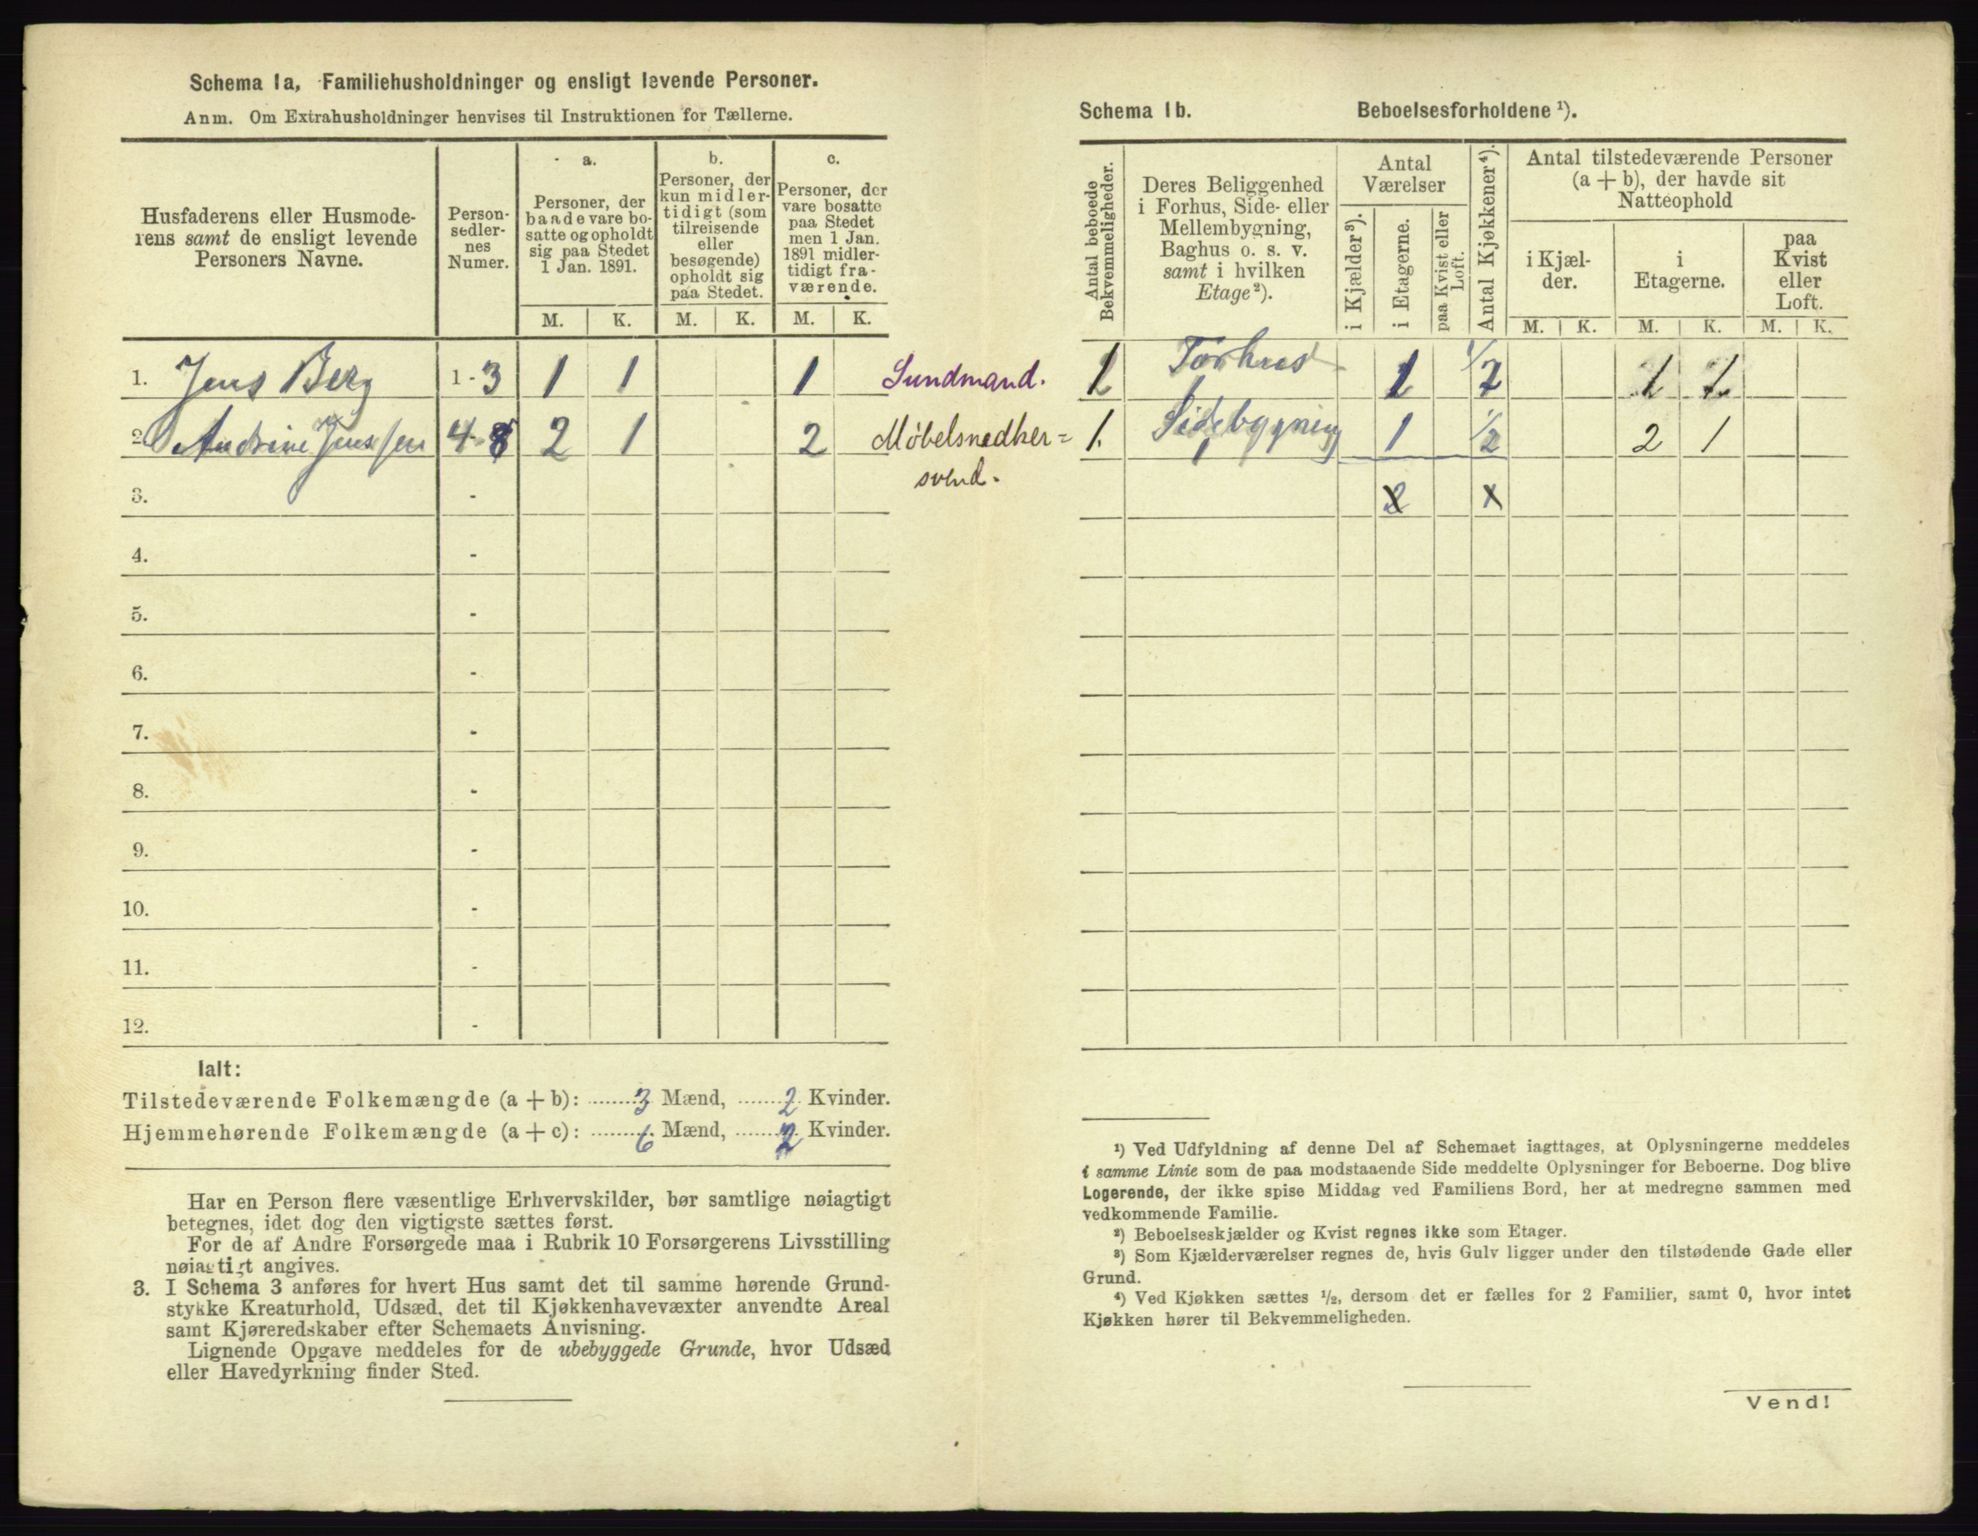 Schema 1a, Familiehusholdninger og ensligt levende Personer.
Anm. Om Extrahusholdninger henvises til Instruktionen for Tællerne.
Husfaderens eller Husmoderens samt de ensligt levende Personers Navne.
Person-
sedler-
nes
Numer.
a.
Personer, der
baade vare bo-
satte og opholdt
sig paa Stedet
1 Jan. 1891.
b.
Personer, der
kun midler-
tidigt (som
tilreisende
eller
besøgende)
opholdt sig
paa Stedet.
c.
Personer, der
vare bosatte
paa Stedet
men 1 Jan.
1891 midler-
tidigt fra-
værende.
M. K. M. K. M. K.
1. Jens Berg 1-3 1 1 1 Sundmand.
2. Andrine Jenssen 4-8 2 1 2 Møbelsnedker=
svend.
3. -
4. -
5. -
6. -
7. -
8. -
9. -
10. -
11. -
12. -
Ialt:
Tilstedeværende Folkemængde (a + b): 3 Mænd, 2 Kvinder.
Hjemmehørende Folkemængde (a + c): 6 Mænd, 2 Kvinder.
Har en Person flere væsentlige Erhvervskilder, bør samtlige nøiagtigt
betegnes, idet dog den vigtigste sættes først.
For de af Andre Forsørgede maa i Rubrik 10 Forsørgerens Livsstilling
nøiagtigt angives.
3. I Schema 3 anføres for hvert Hus samt det til samme hørende Grund-
stykke Kreaturhold, Udsæd, det til Kjøkkenhavevæxter anvendte Areal
samt Kjøreredskaber efter Schemaets Anvisning.
Lignende Opgave meddeles for de ubebyggede Grunde, hvor Udsæd
eller Havedyrkning finder Sted.
Schema 1b. Beboelsesforholdene ¹).
Antal beboede
Bekvemmeligheder.
Deres Beliggenhed
i Forhus, Side- eller
Mellembygning,
Baghus o. s. v.
samt i hvilken
Etage²).
Antal
Værelser
i Kjælder³).
i Etagerne.
paa Kvist eller
Loft.
Antal Kjøkkener⁴).
Antal tilstedeværende Personer
(a + b), der havde sit
Natteophold
i Kjæl-
der.
i
Etagerne.
paa
Kvist
eller
Loft.
M. K. M. K. M. K.
1 Forhus 1 1/2 1 1
1. Sidebygning 1 1/2 2 1
2 x
¹) Ved Udfyldning af denne Del af Schemaet iagttages, at Oplysningerne meddeles
i samme Linie som de paa modstaaende Side meddelte Oplysninger for Beboerne. Dog blive
Logerende, der ikke spise Middag ved Familiens Bord, her at medregne sammen med
vedkommende Familie.
²) Beboelseskjælder og Kvist regnes ikke som Etager.
³) Som Kjælderværelser regnes de, hvis Gulv ligger under den tilstødende Gade eller
Grund.
⁴) Ved Kjøkken sættes ½, dersom det er fælles for 2 Familier, samt 0, hvor intet
Kjøkken hører til Bekvemmeligheden.
Vend!